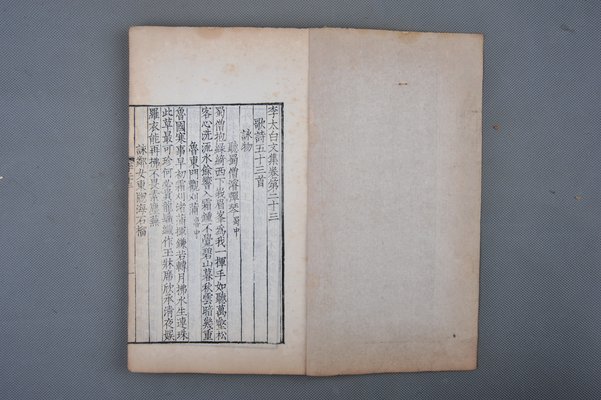 李太白文集卷第二十三
歌詩五十三首
詠物
聽蜀僧濬彈琴 蜀中
蜀僧抱綠綺西下峨眉峯為我一揮手如聽萬壑松
客心洗流水餘響入霜鐘不覺碧山暮秋雲暗幾重
魯東門觀刈蒲 魯中
魯國寒事早初霜刈渚蒲揮鎌若轉月拂水生連珠
此草最可珍何必貴龍鬚織作玉牀席欣承清夜娛
羅衣能再拂不畏素塵蕪
詠鄰女東牕海石榴